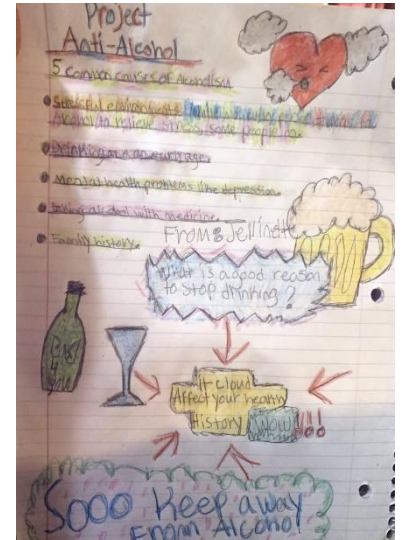 Project
Anti-Alcohol
5 common causes of Alcoholism
Stressful environments
Alcohol to relieve stress, some people
Drinking at a young age.
Mental health problems like depression.
Taking alcohol with medicine.
Family history.
From: Jellinette
What is a good reason
to stop drinking?
It cloud
Affect your health
History WOW!!!
Sooo Keep away
From Alcohol